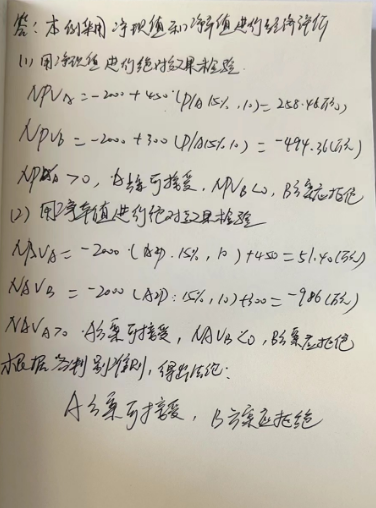 答：本例采用净现值和净年值进行经济评价
(1) 用净现值进行绝对效果检验.
NPVA = -2000 + 450·(P/A 15%, 10) = 258.46(万元)
NPVB = -2000 + 300 (P/A 15%, 10) = -494.36(万元)
NPVA > 0, A方案可接受. NPVB < 0, B方案应拒绝
(2) 用净年值进行绝对效果检验
NAVA = -2000·(A/P. 15%, 10) + 450 = 51.40(万元)
NAVB = -2000 (A/P: 15%, 10) + 300 = -98.6(万元)
NAVA > 0. A方案可接受, NAVB < 0, B方案应拒绝
根据各判别准则, 得出结论:
A方案可接受, B方案应拒绝